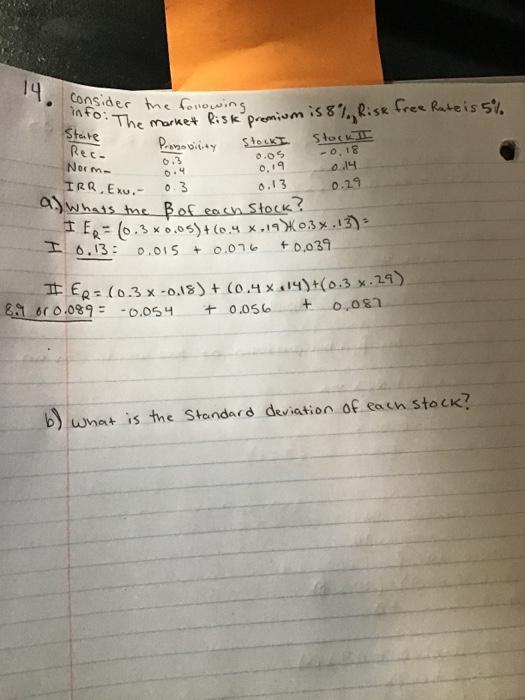 14. Consider the following
info: The market Risk premium is 8%, Risk free Rate is 5%
State Probability Stock I Stock II
Rec- 0.3 0.05 -0.18
Norm- 0.4 0.19 0.14
IRR. Exu.- 0.3 0.13 0.29
a.) Whats the B of each Stock?
I ER = (0.3 x 0.05) + (0.4 x .19)+(0.3 x .13) =
I 0.13 = 0.015 + 0.076 + 0.039
II ER = (0.3 x -0.18) + (0.4 x .14)+(0.3 x .29)
8.9 or 0.089 = -0.054 + 0.056 + 0.087
b) What is the Standard deviation of each stock?